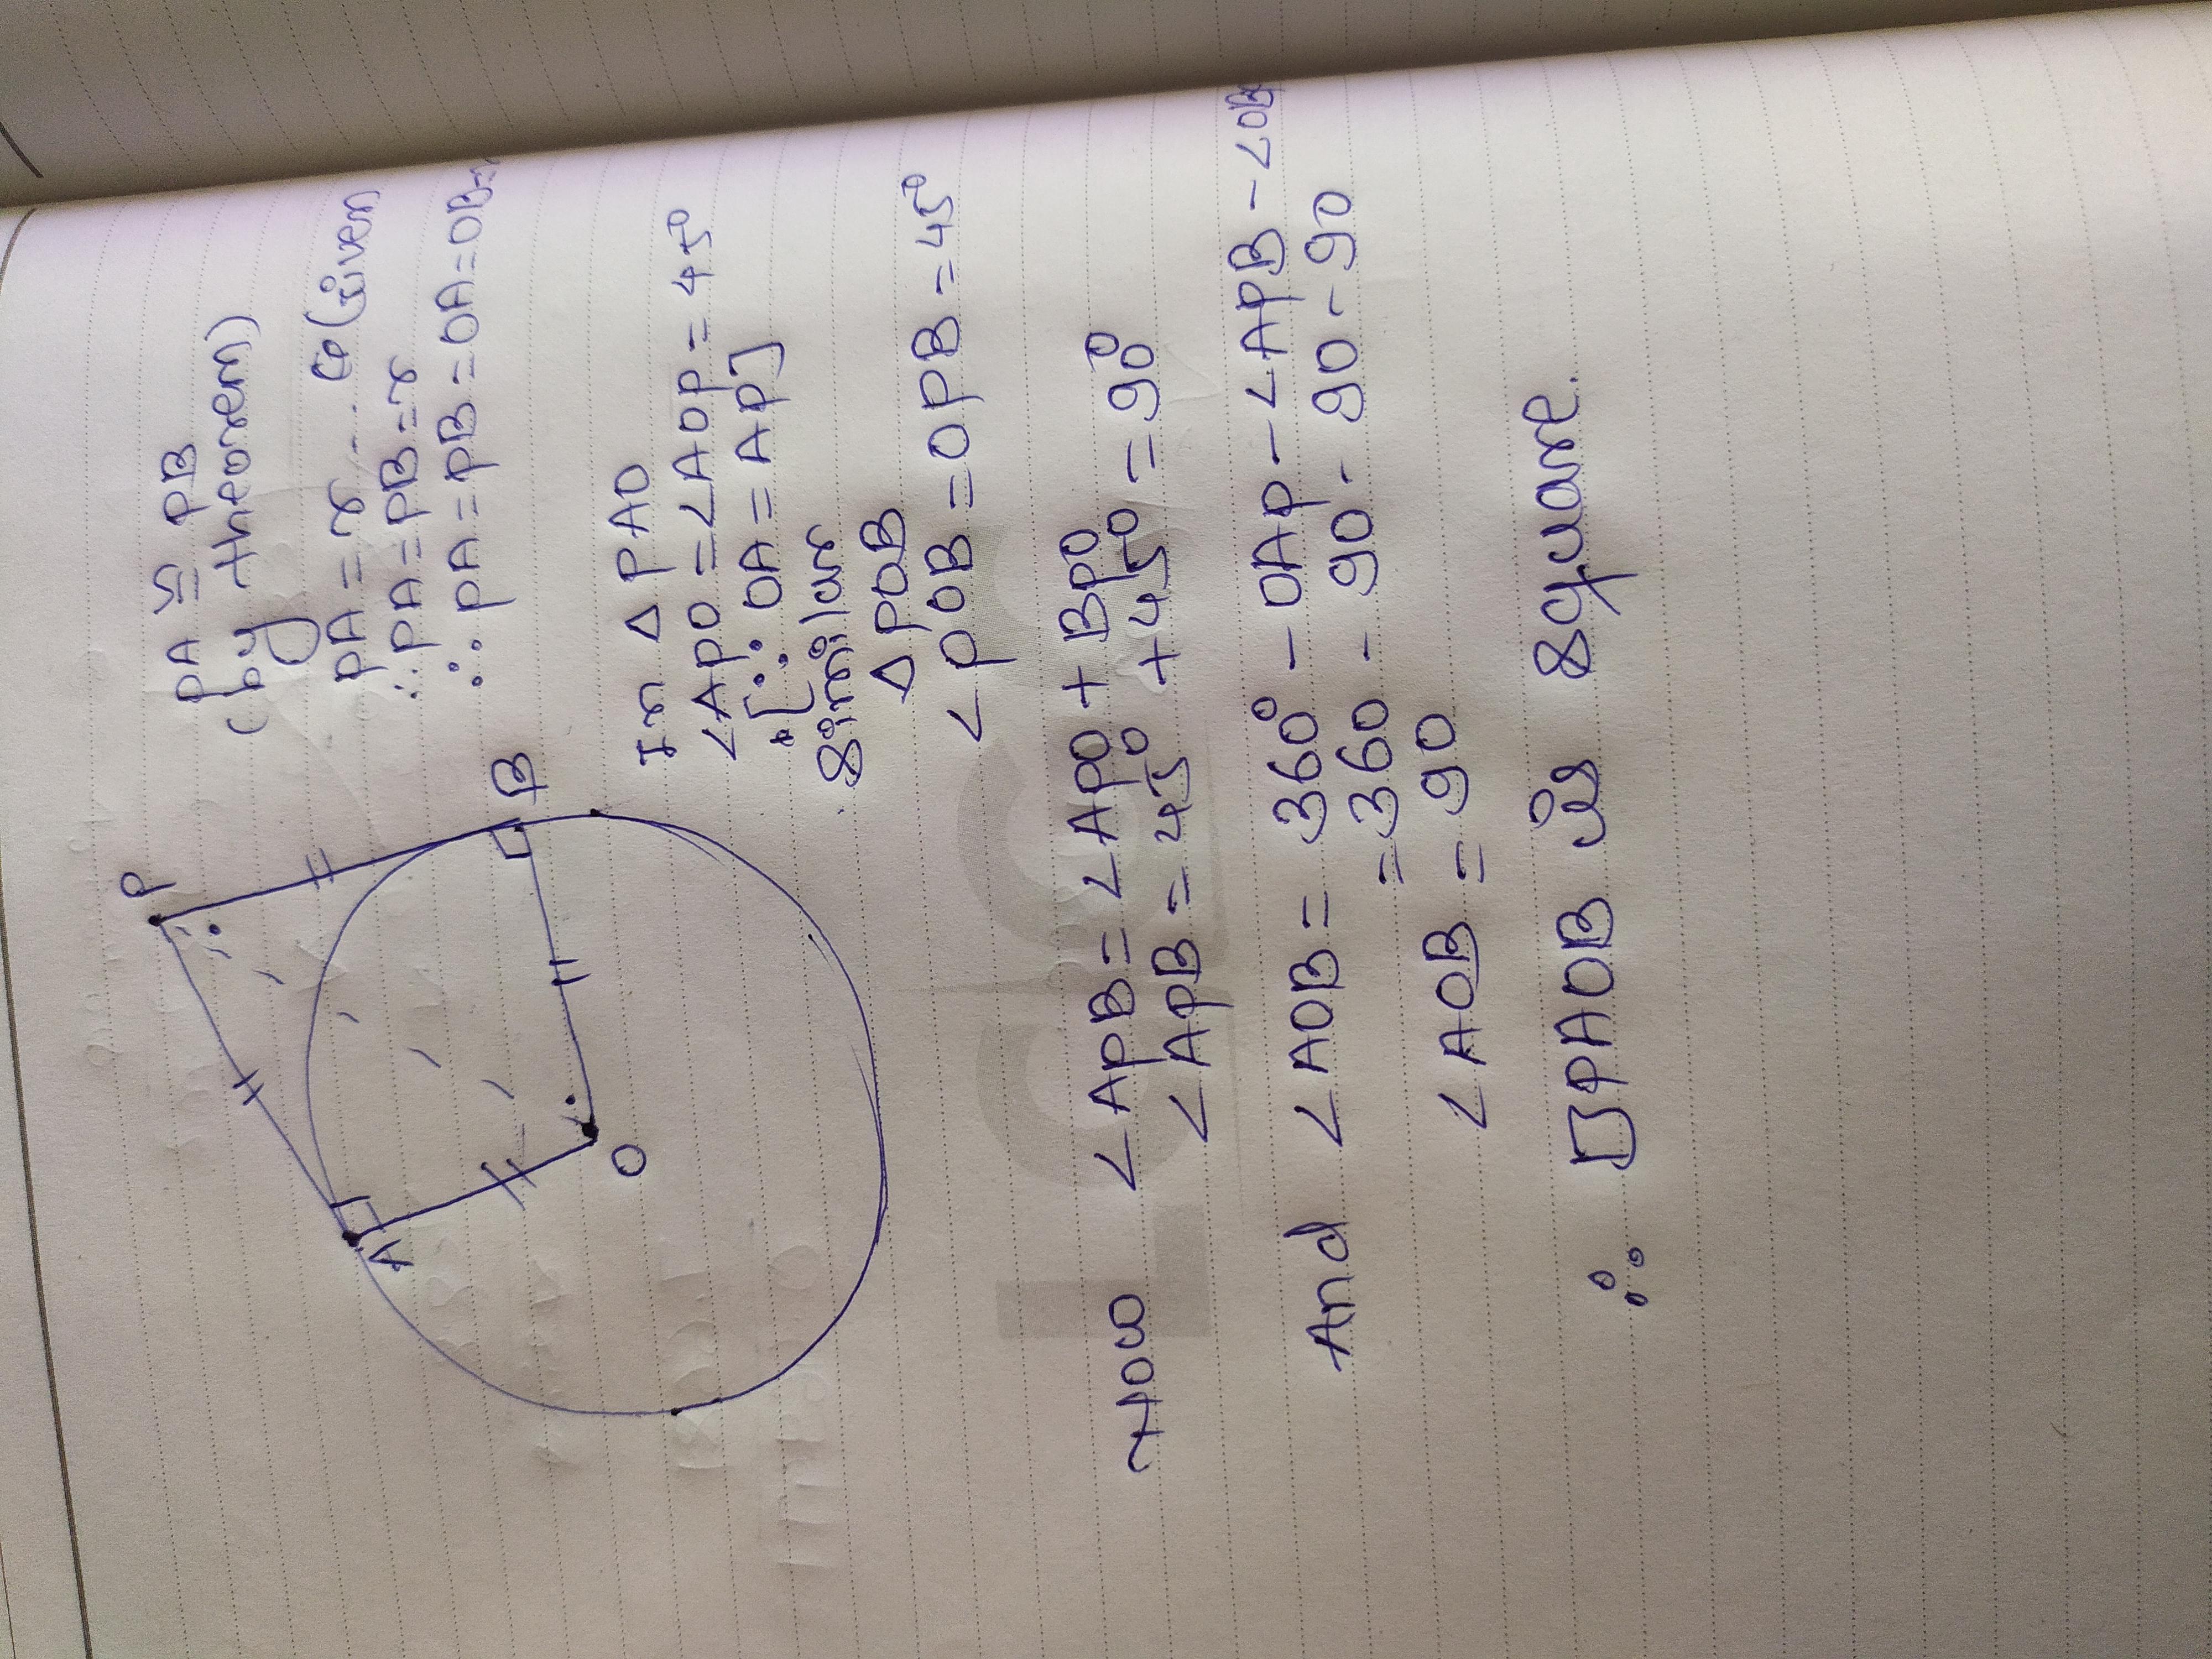 P
A
B
O
PA ≅ PB
(by theorem)
PA = r ... (Given
∴ PA = PB = r
∴ PA = PB = OA = OB =
In △ PAO
∠APO = ∠AOP = 45°
[∵ OA = AP]
Similar
△ POB
∠POB = OPB = 45°
Now ∠APB = ∠APO + BPO
∠APB = 45° + 45° = 90°
And ∠AOB = 360° - OAP - ∠APB - ∠OB
= 360 - 90 - 90 - 90
∠AOB = 90
∴ □PAOB is square.